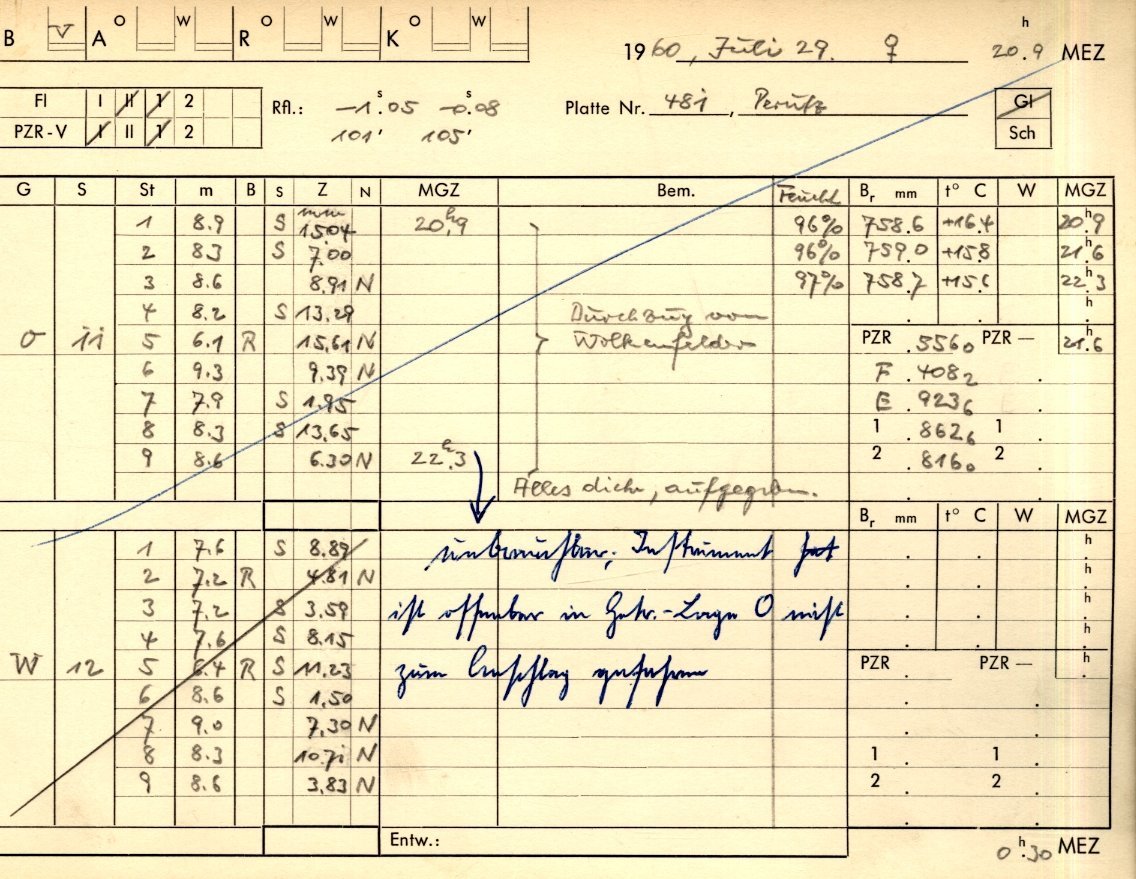 B v A O W R O W K O W
1960, Juli 29. ♀ 20.9 h MEZ
FI I II 1 2
PZR-V I II 1 2
Rfl.: -1.s05 -0.s08
101' 105'
Platte Nr. 481, Perutz
Gl
Sch
G S St m B S Z N MGZ Bem. Feucht. Br mm t° C W MGZ
1 8.9 S mm 15.04 20h.9 96% 758.6 +16.4 20h.9
2 8.3 S 7.00 96% 759.0 +15.8 21h.6
3 8.6 8.91 N 97% 758.7 22h.3
4 8.2 S 13.29 Durchzug von h
O 11 5 6.1 R 15.61 N Wolkenfelder PZR .5560 PZR — 21h.6
6 9.3 9.39 N F .4082
7 7.9 S 1.95 E .9236
8 8.3 S 13.65 1 .8626 1
9 8.6 6.30 N 22h.3 2 .8160 2
Alles dicht, aufgegeben.
Br mm t° C W MGZ
1 7.6 S 8.89 unbrauchbar, Instrument hat h
2 7.2 R 4.81 N h
3 7.2 S 3.59 ist offenbar in Getr.-Lage O nicht h
4 7.6 S 8.15 h
W 12 5 6.4 R S 11.23 zum Anschlag gefahren PZR PZR — h
6 8.6 S 1.50
7 9.0 7.30 N
8 8.3 10.71 N 1 1
9 8.6 3.83 N 2 2
Entw.:
0h.30 MEZ